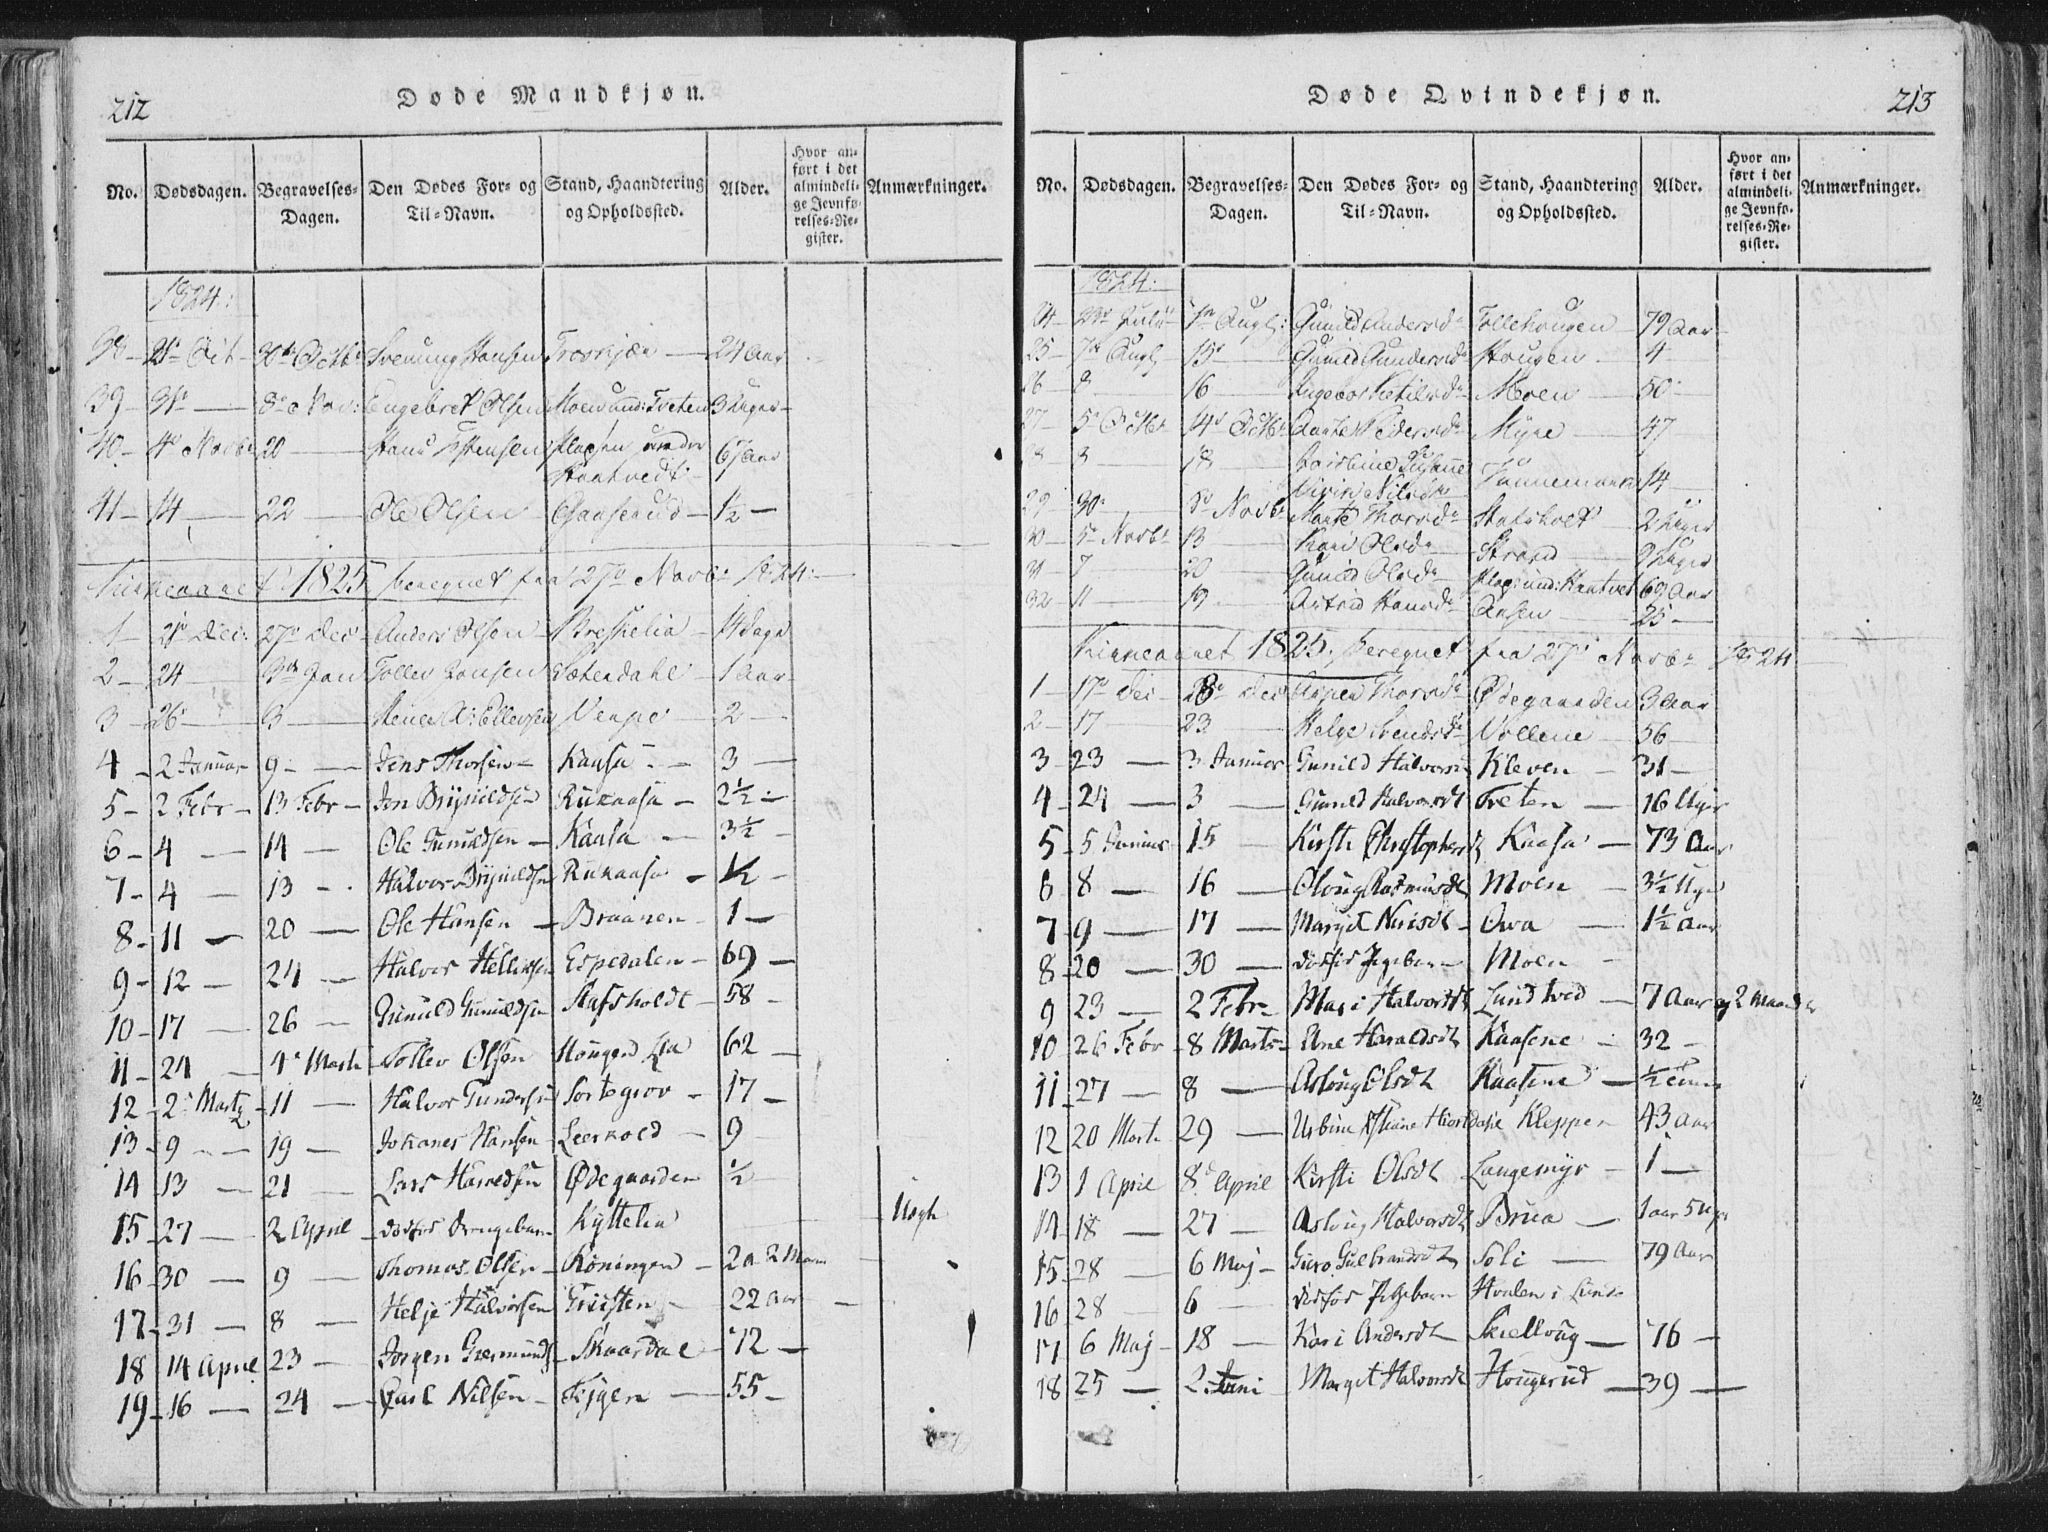 212
Døde Mandkjøn.
No. Dødsdagen. Begravelses-Dagen. Den Dødes For- og Til-Navn. Stand, Haandtering og Opholdssted. Alder. Hvor anført i det almindelige Jevnførelses-Register. Anmærkninger.
1824:
38 - 21 Oct - 30 Octbr Svenning Hansen 24 Aar
39 - 31 - 8 Nov: Engebret Olsen Moen und: Treten 3 Uger
40 - 4 Novbr 20 - Hans Plassen under 67 Aar
Haatvedt -
41 - 14 - 22 - Ole Olsen Gaaserud - 1½ -
Kirkeaaret 1825 beregnet fra 27 Novbr 1824:
1 - 21 Dec: 27 Dec - Anders Olsen - Breskelia - 14 Dage
2 - 24 - 3 Jan Tollev Hansen Sæterdahl - 1 Aar -
3 - 26 - 3 - Venpe - 2 -
4 - 2 Januar 9 - Jens Thorsen - Kaasa - 3 -
5 - 2 Febr - 13 Febr - Jon Brynildsen Rukaasa - 2½ -
6 - 4 - 14 - Ole Gunuldsen - Kaasa - 3½ -
7 - 4 - 13 - Halvor Brynildsen Rukaasa - ½ -
8 - 11 - 20 - Ole Hansen - Braanen - 1 -
9 - 12 - 24 - Halvor Helliksen Espedalen - 69 -
10 - 17 - 26 - Gunuld Gunuldsen Stafsholdt - 58 -
11 - 24 - 4 Marti Tollev Olsen Hougen Lia 62 -
12 - 2 Marty - 11 - Halvor Gundersen Sortegrov - 17 -
13 - 9 - 19 - Johanes Hansen - Leerkold - 9
14 - 13 - 21 - Lars Øde gaarden ½ -
15 - 27 - 2 April - dødfød Drengebarn Kyttelia
Uægt
16 - 30 - 9 - Thomas Olsen - Røningen - 2 a 2 Maan
17 - 31 - 8 - Helje Halvorsen 22 aar -
18 14 April 23 - Jørgen Germunds - Skaardal - 72 -
19 - 16 - 24 - Carl Nilsen - 55 -
213
Døde Qvindekjøn.
No. Dødsdagen. Begravelses-Dagen. Den Dødes For- og Til-Navn. Stand, Haandtering og Opholdssted. Alder. Hvor anført i det almindelige Jevnførelses-Register. Anmærkninger.
1824:
24 - 23 Julii 1 Aug: Gunild Andersdr Tollehougen - 79 Aar
25 - 7 Aug 15 Gunild Gundersdr Hougen - 4 -
26 - 8 16 - Ingebor Ketilsdr Moen - 50 -
27 - 5 Octbr 14 Octbr Pedersdr Myre - 47
28 - 8 - 18 - 14 -
29 30 - 8 Novbr Marte Thorsdr Stafsholt 2 Uger
30 - 5 Novbr 13 Kari Olsdr Strand - 2 Uger
31 - 7 - 20 - Gunild Olsdr Plas: und: Haatvet 69 Aar
32 - 11 - 19 - Astrid Hansdr Aasen - 25 -
Kirkeaaret 1825, beregnet fra 27 Novbr 1824
1 - 17 Dec - 28 Dec Aspen Thorsdr Ødegaarden 3 Aar
2 - 17 23 - Helge Svendsdr Vollene - 56 -
3 - 23 - 3 Januar Gunild Halvorsd Kleven - 31 -
4 - 24 - 3 - Gunild Halvorsdt Treten - 16 Uger
5 - 5 Januar 15 - Kirsti Christophersdt Kaasa - 73 Aar
6 8 - 16 - Oloug Rasmusdt Moen - 3½ Uger
7 9 - 17 - Margit Nirisdt - Owa - 1½ Aar
8 20 - 30 - dødfød Pigebarn - Moen -
9 23 - 2 Febr - Mari Halvorsdt Lundtved - 7 Aar og 2 Maaneder
10 26 Febr - 8 Marts - Ane Haraldsdt Kaasene - 32 -
11 - 27 - 8 - Asloug Olsdt Kaasene - ½
12 20 Marti 29 - Urbine Hiortdahl Kleppen - 43 Aar
13 1 April 8 April Kirsti Olsdt Langemyr - 1 -
14 18 - 27 - Asloug Halvorsdt Brua - 1 aar 5 Uger
15 - 28 - 6 Maj - Guro Gulbrandsdt Soli - 79 Aar
16 28 6 - dødfød Pigebarn Hvalen i Lunde
17 6 Maj - 18 - Kari Andersdt Skiellvug - 76 -
18 25 - 2 Juni Margit Halvorsdt Hougerud - 39 -